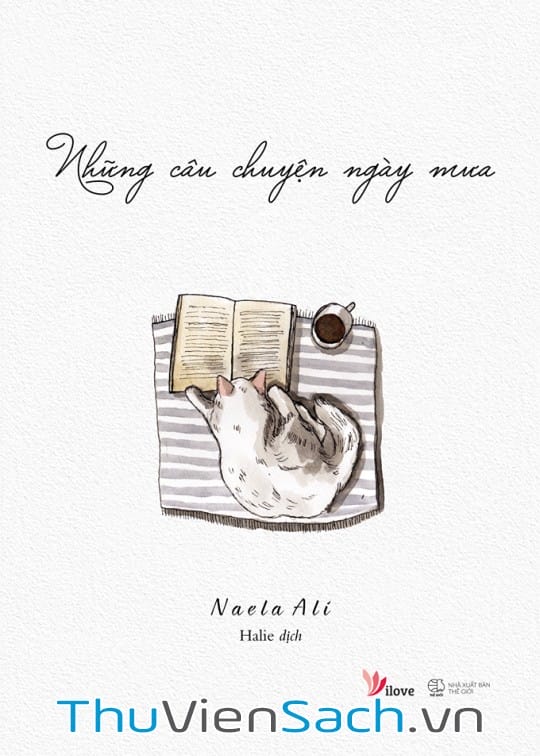 Những câu chuyện ngày mưa
Naela Ali
Halie dịch
ilove
THẾ GIỚI
NHÀ XUẤT BẢN
THẾ GIỚI
ThuVienSach.vn